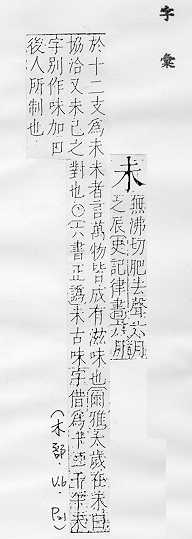 字彙
未
無沸切肥去聲六月
之辰史記律書六月
於十二支為未未者言萬物皆成有滋味也爾雅太歲在未曰
協洽又未已之
對也○六書正譌未古味字借為
字別作味加口
後人所制也
(木部. V.6. P.1)